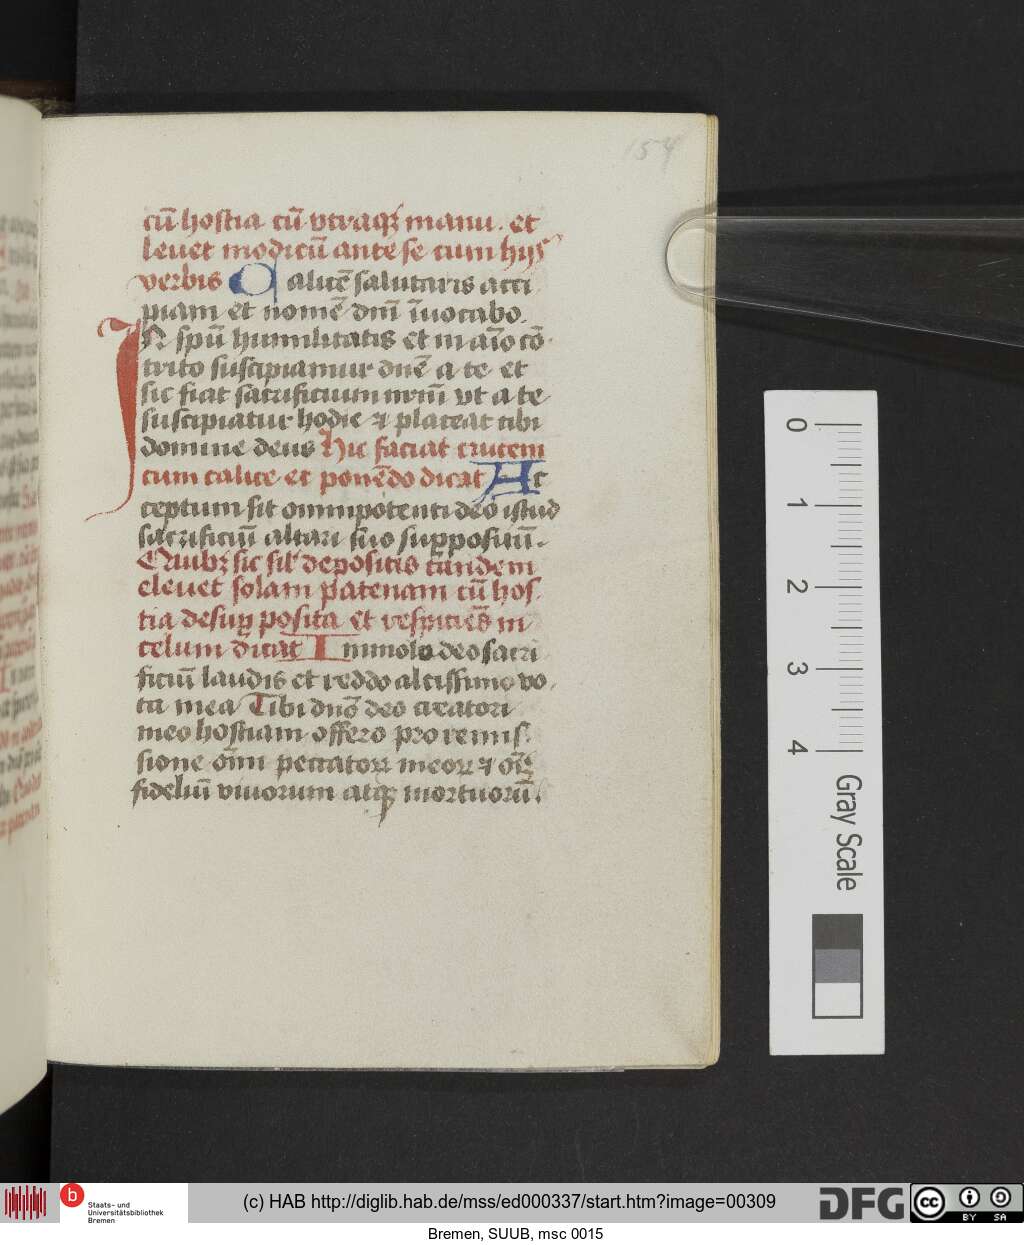 154
cū hostia cū vtraqꝫ manu. et
leuet modicū ante se cum hijs
verbis Calicē salutaris acci
piam et nomē dnī īuocabo.
IN spū humilitatis et in aīo cō
trito suscipiamur dnē a te et
sic fiat sacrificium nrm̄ vt a te
suscipiatur hodie ⁊ placeat tibi
domine deus Hic faciat crucem
cum calice et ponēdo dicat Ac
ceptum sit omnipotenti deo istud
sacrificiū altari suo suppositū.
Quibꝫ sic sil' depositis tandem
eleuet solam patenam cū hos
tia desuꝑ posita et respiciēs in
celum dicat Immolo deo sacri
ficiū laudis et reddo altissimo vo
ta mea Tibi dnō deo creatori
meo hostiam offero pro remis
sione oīm peccatoꝝ meoꝝ ⁊ oīm
fideliū viuorum atqꝫ mortuorū.
0
1
2
3
4
Gray Scale
b
Staats- und
Universitätsbibliothek
Bremen
(c) HAB http://diglib.hab.de/mss/ed000337/start.htm?image=00309
DFG
cc
BY SA
Bremen, SUUB, msc 0015